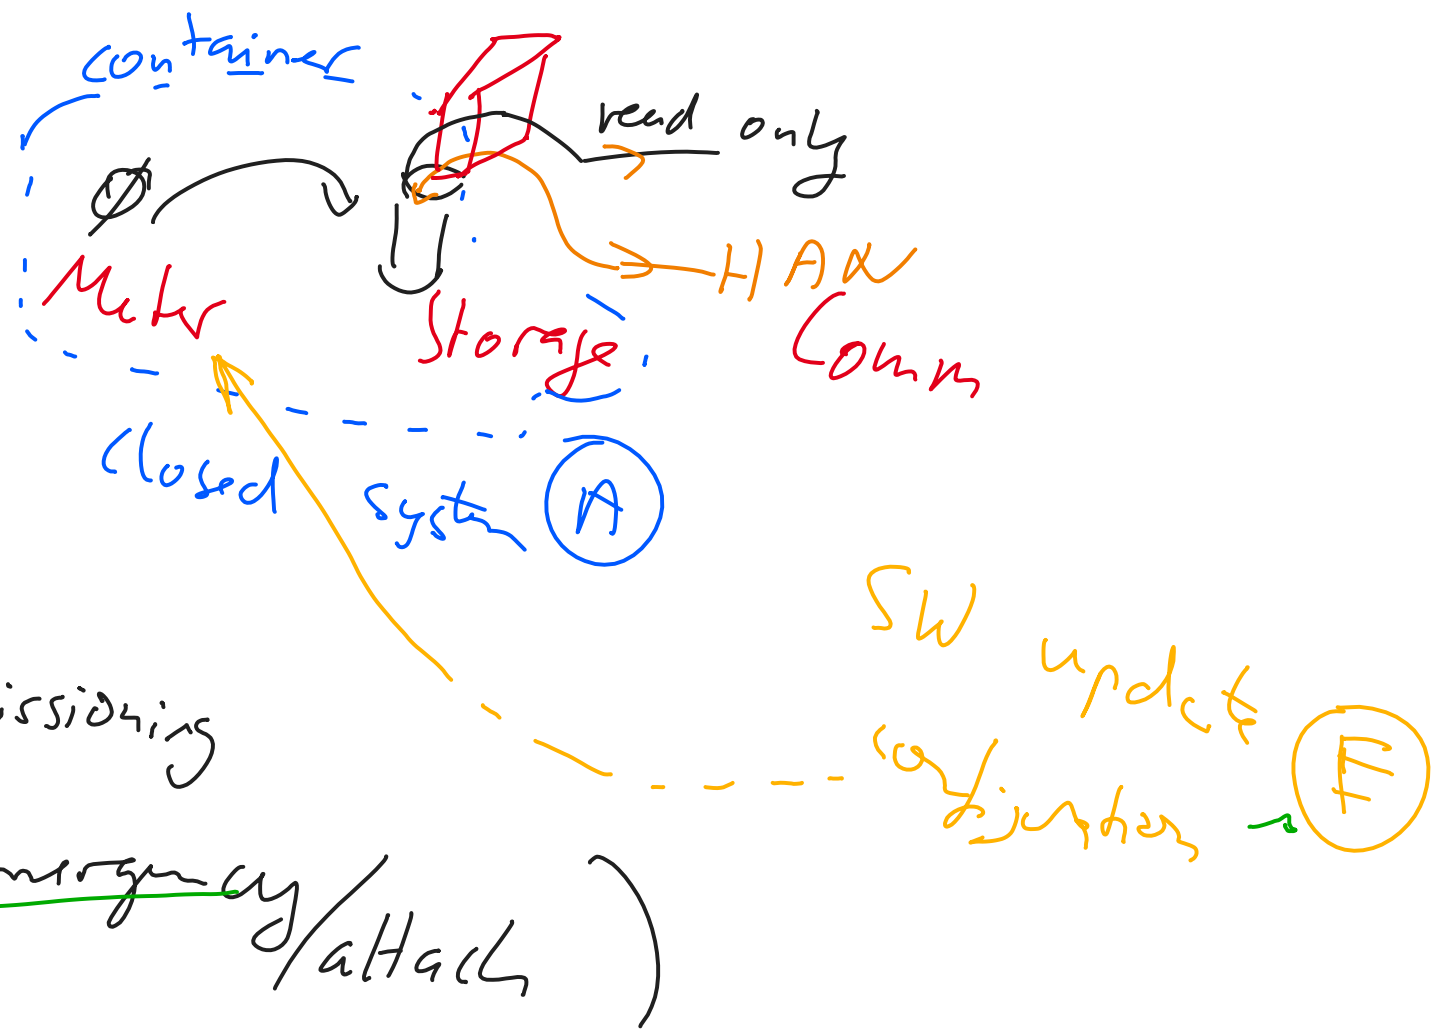 container
read only
Ø
HAN
Meter
Storage
Comm
Closed system A
SW update
configuration F
issioning
mergency/attach)